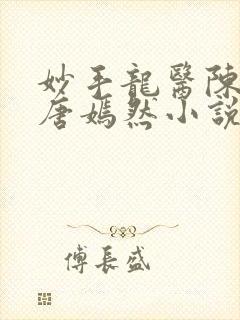 妙手龍醫陳
唐嫣然小說
傅長盛